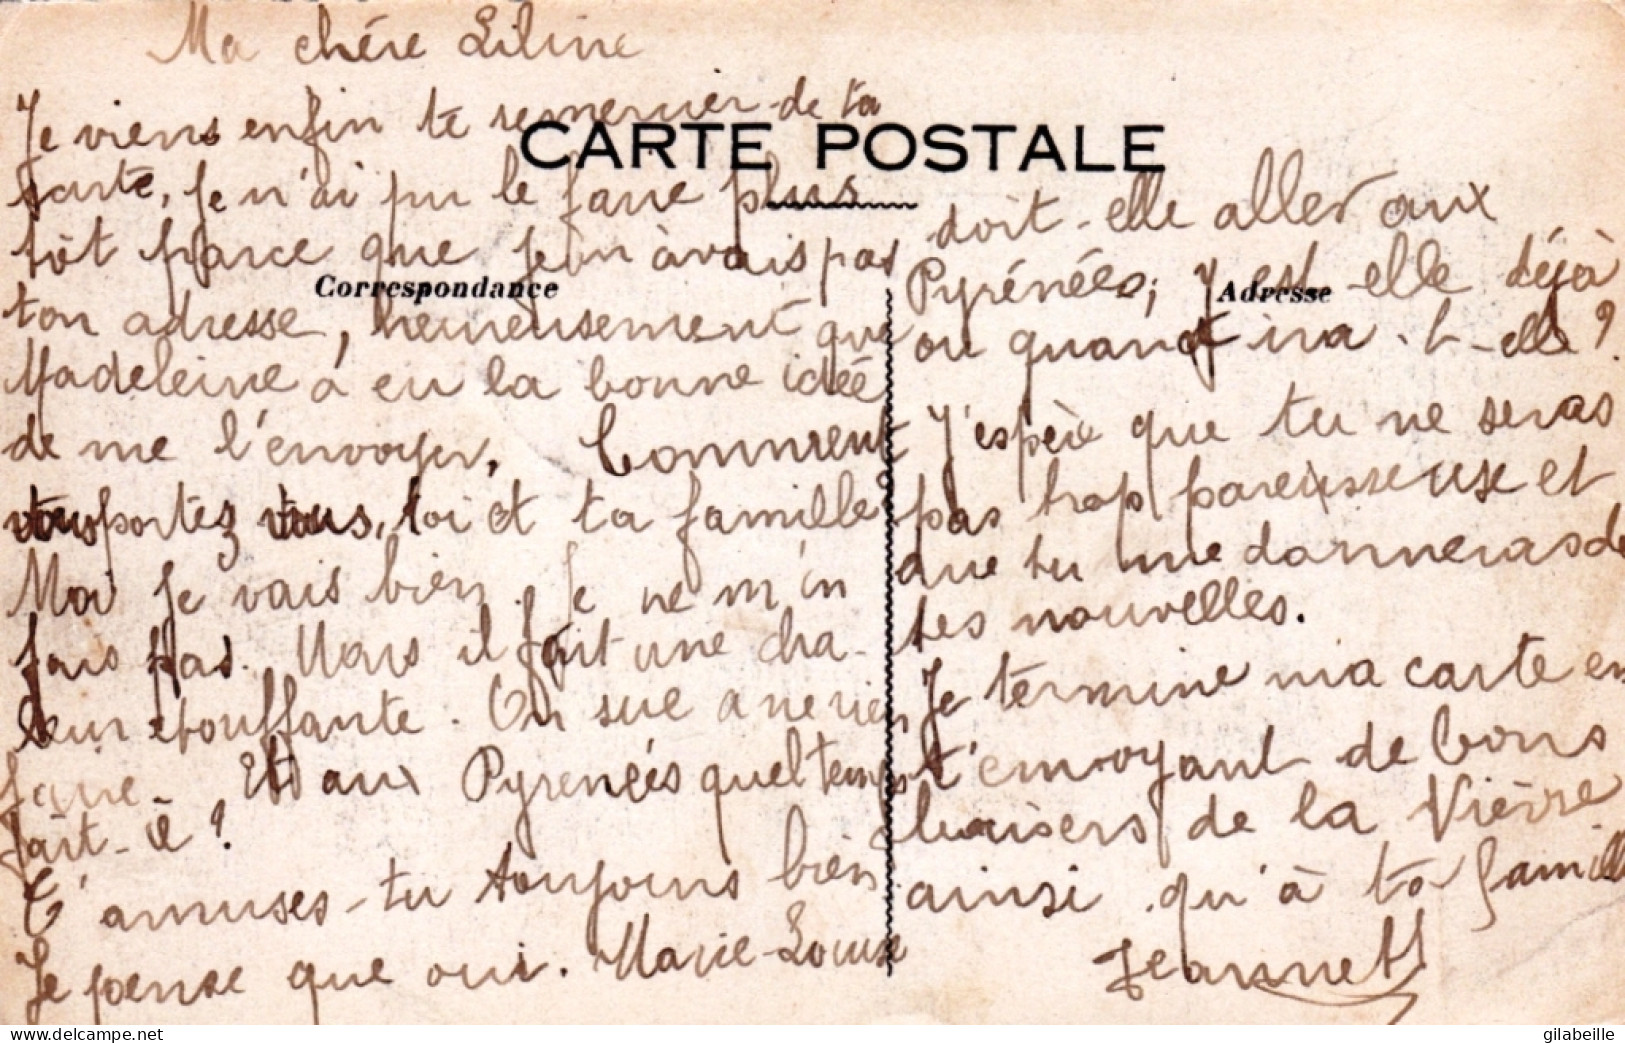 Ma chère Liline
Je viens enfin te remercier de ta
CARTE POSTALE
carte, Je n'ai pu le faire plus
tôt parce que Je n'avais pas
Correspondance
ton adresse, heureusement que
Madeleine a eu la bonne idée
de me l'envoyer. Comment
vous portez vous, toi et ta famille?
Moi Je vais bien. Je ne m'en
fais pas. Mais il fait une cha-
leur etouffante. On sue a ne rien
faire. Et aux Pyrénées quel temps
fait-il?
T'amuses-tu toujours bien
Je pense que oui. Marie-Louise
doit-elle aller aux
Pyrénées, y est elle déjà
Adresse
ou quand ira-t-elle?
J'espère que tu ne seras
pas trop pareisseuse et
que tu me donneras de
tes nouvelles.
Je termine ma carte en
t'envoyant de bons
baisers de la Vièvre
ainsi qu'à ta famille
Jeannette
gilabeille